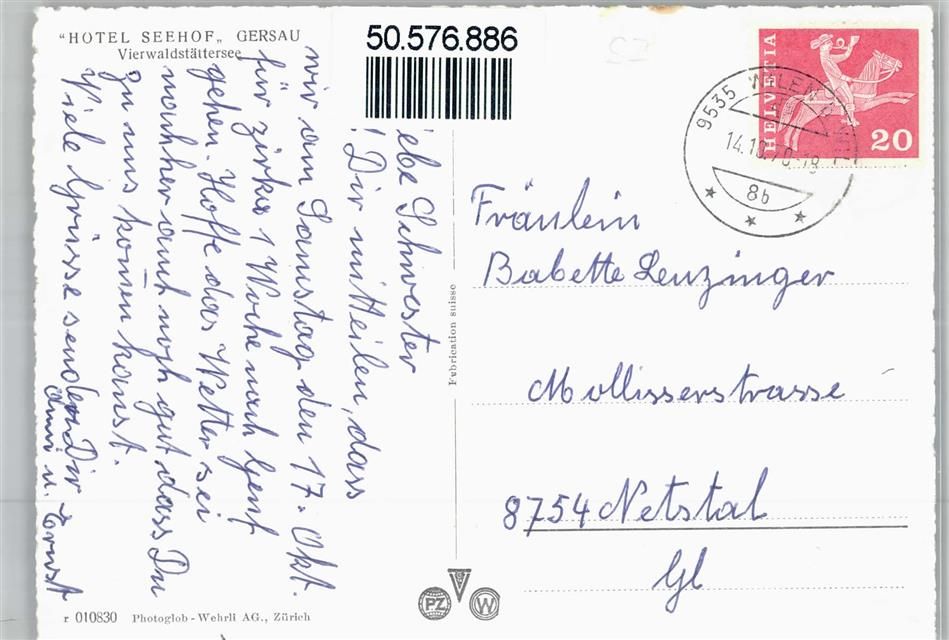 "HOTEL SEEHOF„ GERSAU
Vierwaldstättersee
50.576.886
HELVETIA
20
9535 WILEN B.
14.10.70-18
8b
ebe Schwester
! Dir mitteilen, dass
wir am Samstag den 17. Okt.
für zirka 1 Woche nach Genf
gehen. Hoffe das Wetter sei
nachher auch noch gut dass Du
zu uns komen kanst.
Viele Grüsse senden Dir
Anni u. Ernst
Fabrication suisse
Fräulein
Babette Lenzinger
Mollisserstrasse
8754 Netstal
Gl
PZ
W
r 010830 Photoglob-Wehrli AG., Zürich